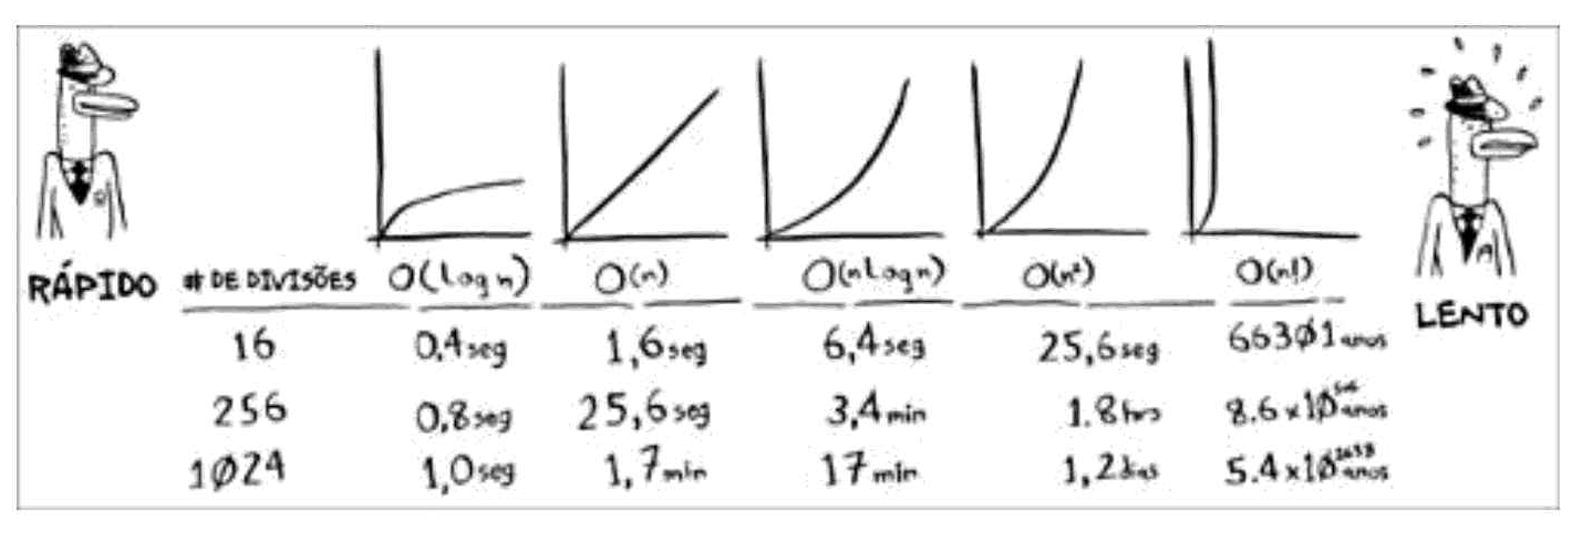 RÁPIDO
# DE DIVISÕES O(log n) O(n) O(n log n) O(n²) O(n!)
LENTO
16 0,4 seg 1,6 seg 6,4 seg 25,6 seg 66301 anos
256 0,8 seg 25,6 seg 3,4 min 1.8 hrs 8.6 x 10 anos
1024 1,0 seg 1,7 min 17 min 1,2 dias 5.4 x 10 anos